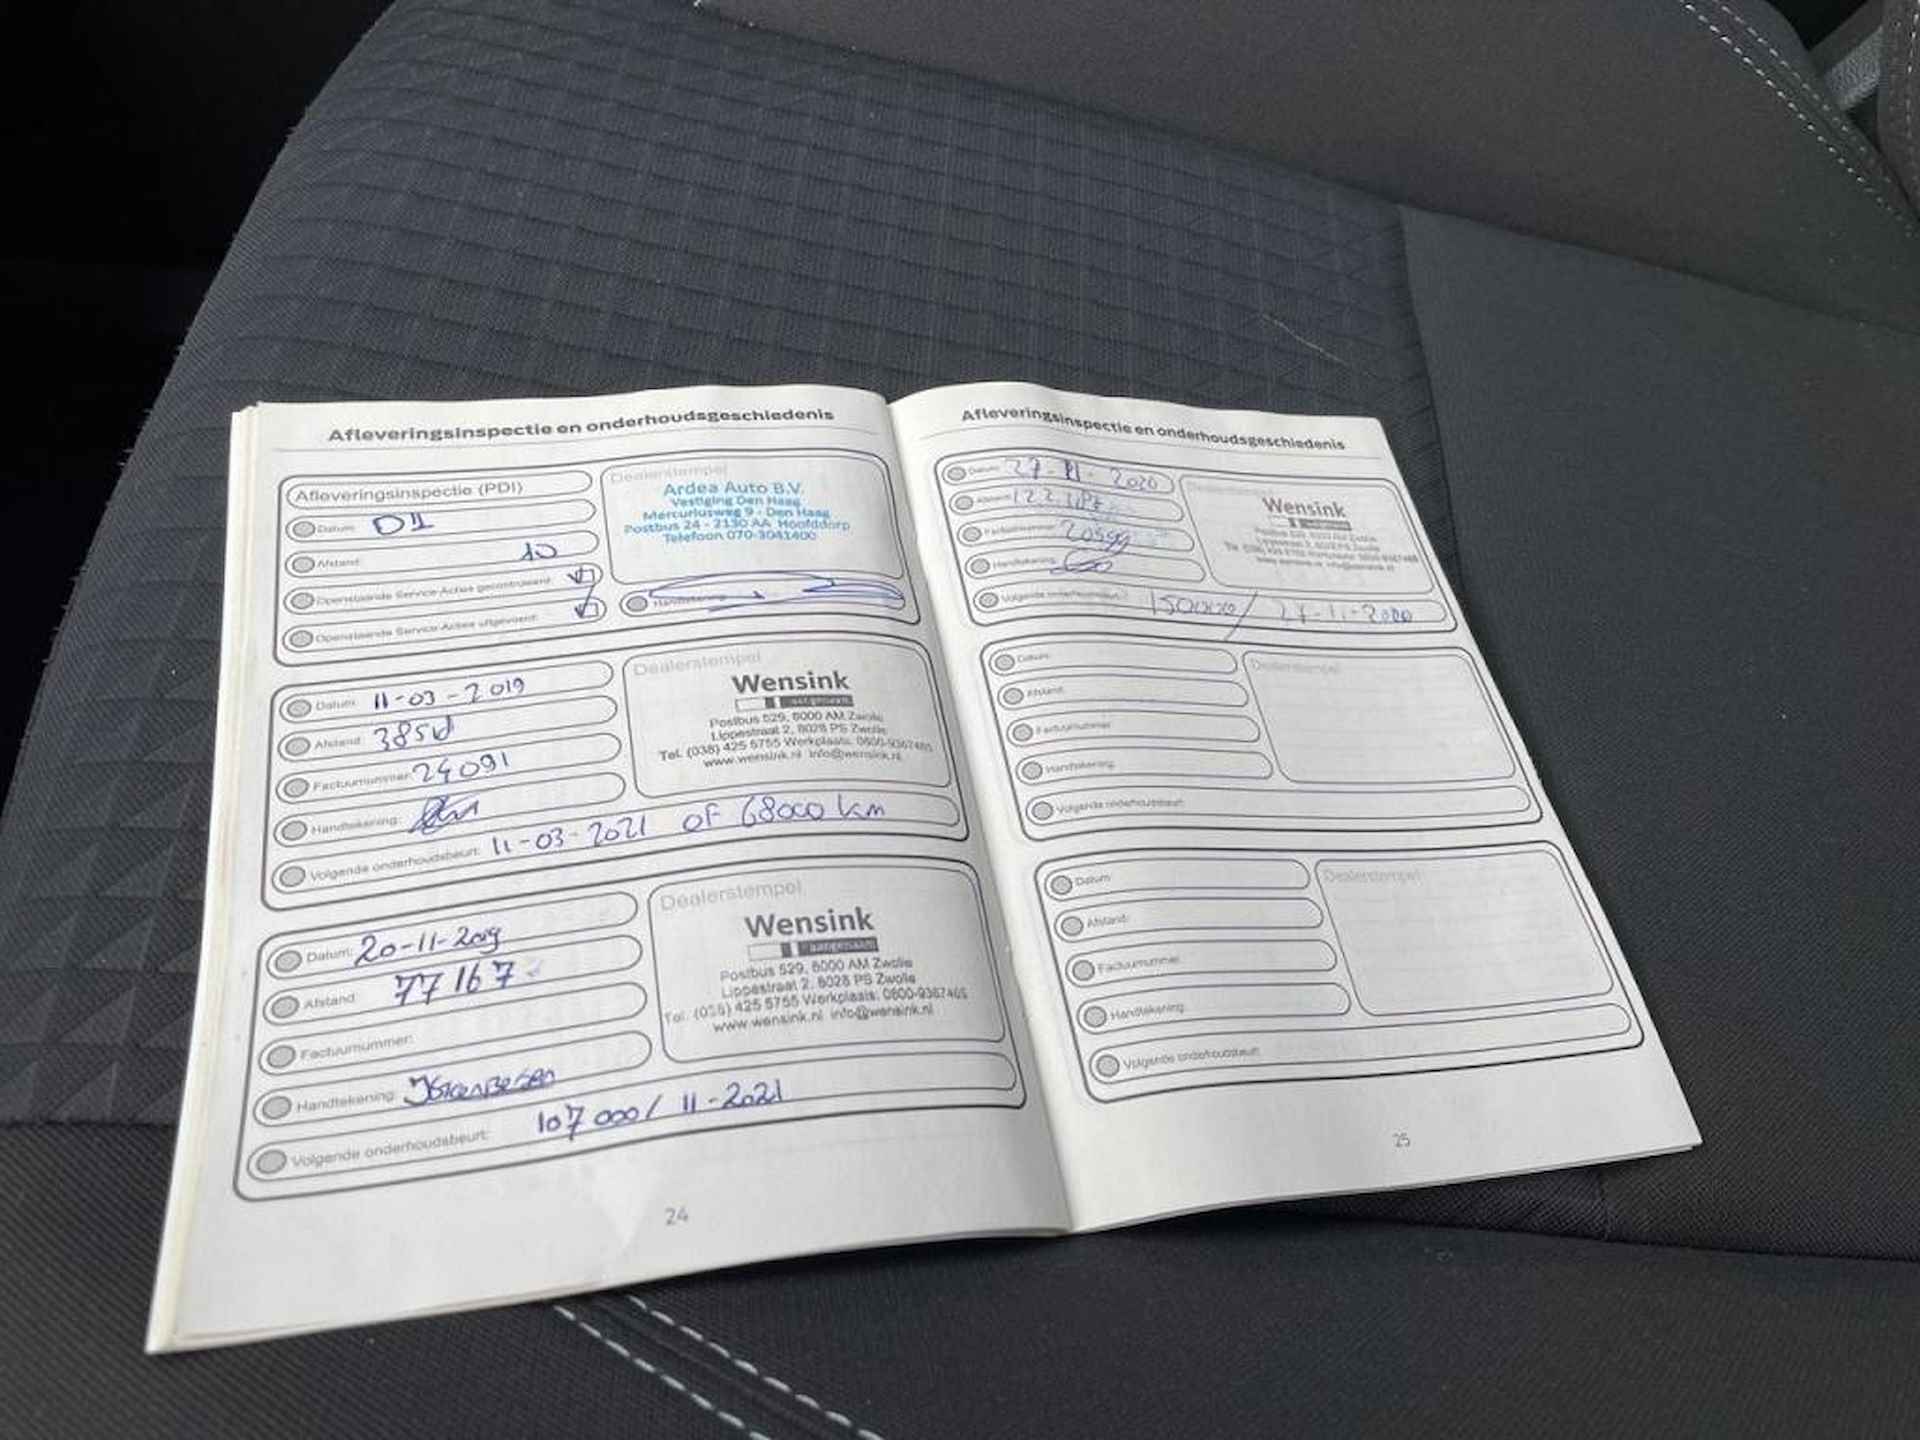 Afleveringsinspectie en onderhoudsgeschiedenis
Afleveringsinspectie (PDI)
Datum:
Afstand: 10
Openstaande Service-Acties gecontroleerd:
Openstaande Service-Acties uitgevoerd:
Dealerstempel
Ardea Auto B.V.
Vestiging Den Haag
Mercuriusweg 9 - Den Haag
Postbus 24 - 2130 AA Hoofddorp
Telefoon 070-3041400
Handtekening:
Datum: 11-03-2019
Afstand:
Factuurnummer: 24091
Handtekening:
Volgende onderhoudsbeurt: 11-03-2021 OF 68000 km
Dealerstempel
Wensink
aangenaam
Postbus 529, 8000 AM Zwolle
Lippestraat 2, 8028 PS Zwolle
Tel. (038) 425 5755 Werkplaats: 0800-9367465
www.wensink.nl info@wensink.nl
Datum: 20-11-2019
Afstand: 77167
Factuurnummer:
Handtekening:
Volgende onderhoudsbeurt: 107000/ 11-2021
Dealerstempel
Wensink
aangenaam
Postbus 529, 8000 AM Zwolle
Lippestraat 2, 8028 PS Zwolle
Tel. (038) 425 5755 Werkplaats: 0800-9367465
www.wensink.nl info@wensink.nl
24
Afleveringsinspectie en onderhoudsgeschiedenis
Datum: 27-11-2020
Afstand:
Factuurnummer: 20599
Handtekening:
Volgende onderhoudsbeurt: 150000/
Dealerstempel
Wensink
Datum:
Afstand:
Factuurnummer:
Handtekening:
Volgende onderhoudsbeurt:
Dealerstempel
Datum:
Afstand:
Factuurnummer:
Handtekening:
Volgende onderhoudsbeurt:
Dealerstempel
25